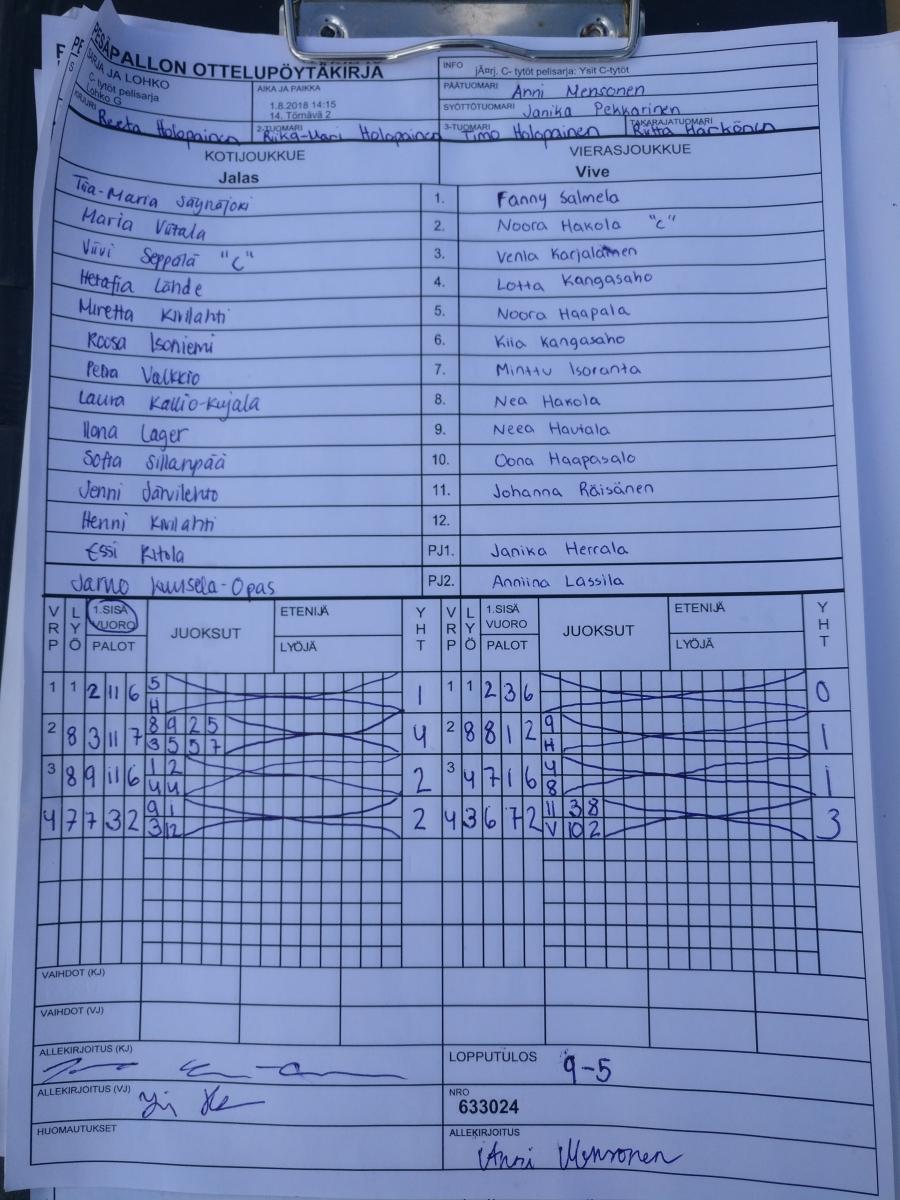 PESÄPALLON OTTELUPÖYTÄKIRJA
SARJA JA LOHKO
C- tytöt pelisarja
Lohko G
AIKA JA PAIKKA
1.8.2018 14:15
14. Törnävä 2
INFO
jÃ¤rj. C- tytöt pelisarja: Ysit C-tytöt
PÄÄTUOMARI Anni Mensonen
SYÖTTÖTUOMARI Janika Pekkarinen
KIRJURI Reeta Holopainen
2-TUOMARI Riika-Mari Holopainen
3-TUOMARI Timo Holopainen
TAKARAJATUOMARI Riitta Harkönen
KOTIJOUKKUE VIERASJOUKKUE
Jalas Vive
Tiia-Maria Jäynäjoki 1. Fanny Salmela
Maria Viitala 2. Noora Hakola "c"
Viivi Seppälä "C" 3. Venla Karjalainen
Hetafia Lähde 4. Lotta Kangasaho
Miretta Kivilahti 5. Noora Haapala
Roosa Isoniemi 6. Kiia Kangasaho
Petra Valkkio 7. Minttu Isoranta
Laura Kallio-Kujala 8. Nea Hakola
Ilona Lager 9. Neea Hautala
Sofia Sillanpää 10. Oona Haapasalo
Jenni Järvilehto 11. Johanna Räisänen
Henni Kivilahti 12.
Essi Ritola PJ1. Janika Herrala
Jarno Kuusela-Opas PJ2. Anniina Lassila
VRP LYÖ 1.SISÄ VUORO PALOT JUOKSUT ETENIJÄ LYÖJÄ YHT VRP LYÖ 1.SISÄ VUORO PALOT JUOKSUT ETENIJÄ LYÖJÄ YHT
1 1 2 11 6 5 1 1 1 2 3 6 0
H
2 8 3 11 7 8 9 2 5 4 2 8 8 1 2 9 1
3 5 5 7 H
3 8 9 11 6 1 2 2 3 4 7 1 6 4 1
4 4 8
4 7 7 3 2 9 1 2 4 3 6 7 2 11 3 8 3
3 12 V 10 2
VAIHDOT (KJ)
VAIHDOT (VJ)
ALLEKIRJOITUS (KJ)
LOPPUTULOS 9-5
ALLEKIRJOITUS (VJ)
NRO
633024
HUOMAUTUKSET
ALLEKIRJOITUS
Anni Mensonen